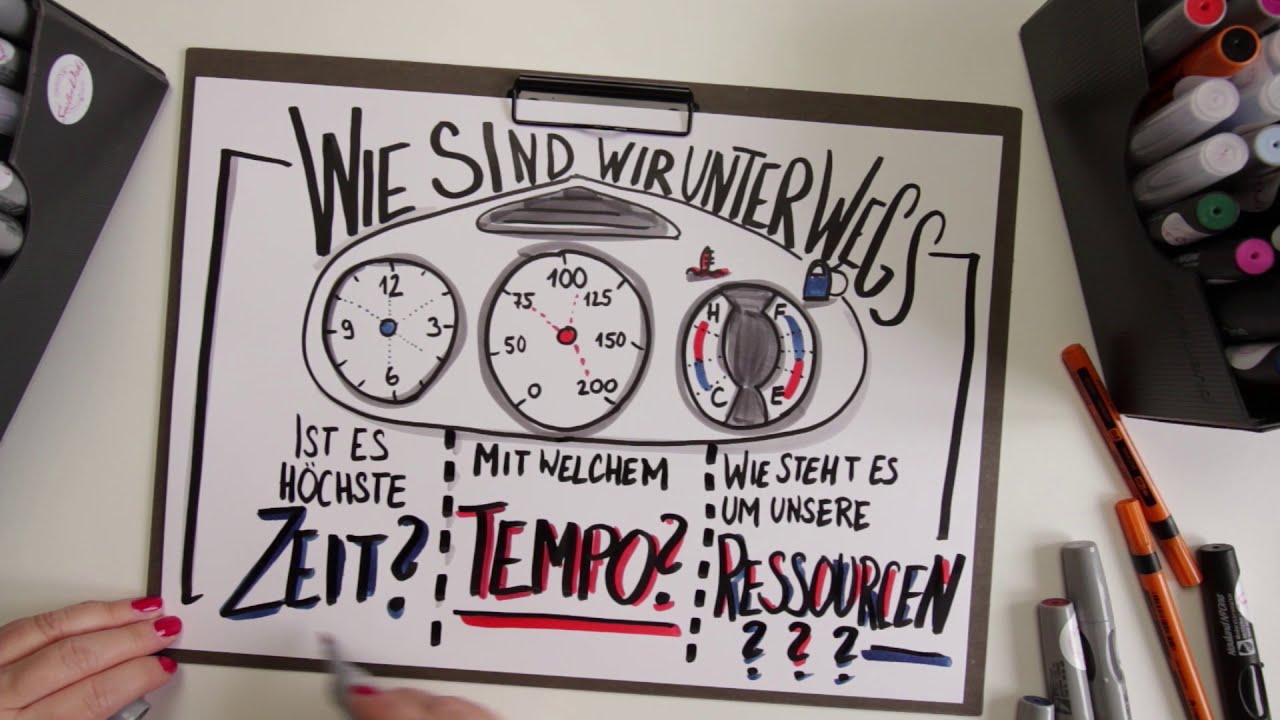 WIE SIND WIR UNTERWEGS
12
9
3
6
0
50
75
100
125
150
200
H
C
F
E
IST ES
HÖCHSTE
ZEIT?
MIT WELCHEM
TEMPO?
WIE STEHT ES
UM UNSERE
RESSOURCEN
? ? ?